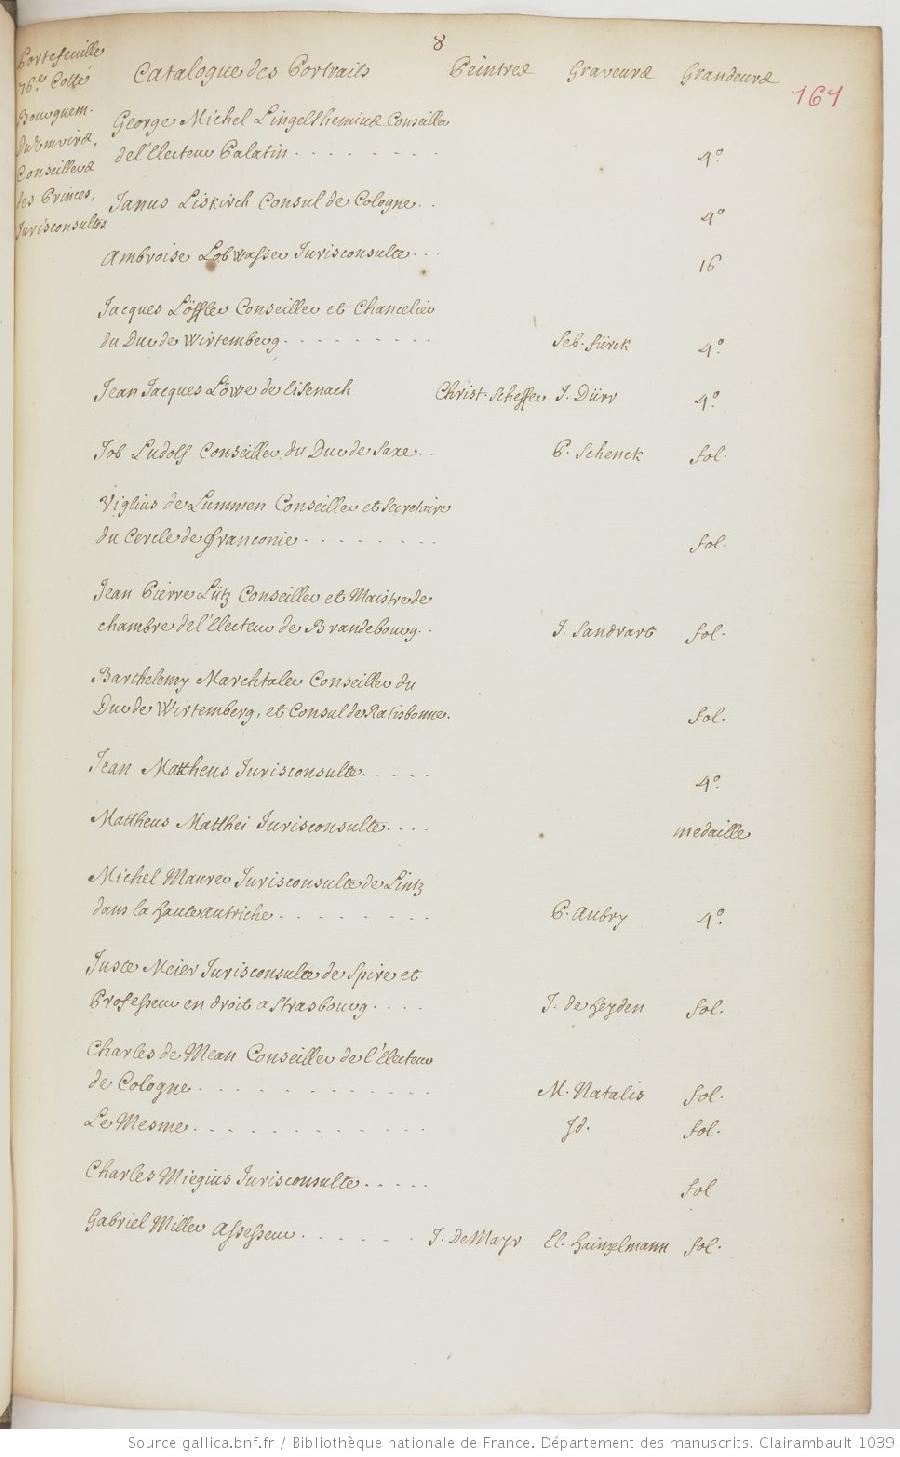 8
Portefeuille
76e. Cotté
Bourguem.
Duumvirs,
Conseillers
des Princes,
Jurisconsultes
Catalogue des Portraits Peintres Graveurs Grandeurs
161
George Michel Lingelshemius Conseiller
de l'Electeur Palatin . . . . . . . . 4º.
Janus Liskirch Consul de Cologne . . 4º
Ambroise Lobwasser Jurisconsulte . . . 16
Jacques Löffler Conseiller et Chancelier
du Duc de Wirtemberg . . . . . . . . . Seb. Fürck 4º.
Jean Jacques Löwe de Eisenach Christ. Scheffer J. Dürr 4º.
Job Ludolf Conseiller du Duc de Saxe . . P. Schenck fol.
Viglius de Lummen Conseiller et Secretaire
du Cercle de Franconie . . . . . . . . fol.
Jean Pierre Lütz Conseiller et Maistre de
chambre de l'Electeur de Brandebourg . . J. Sandrart fol.
Barthelemy Marchtaler Conseiller du
Duc de Wirtemberg, et Consul de Ratisbonne. fol.
Jean Mattheus Jurisconsulte . . . . 4º.
Mattheus Matthei Jurisconsulte . . . . medaille
Michel Maurer Jurisconsulte de Lintz
dans la haute autriche . . . . . . . . P. Aubry 4º.
Juste Meier Jurisconsulte de Spire et
Professeur en droit a Strasbourg . . . . J. de Heyden fol.
Charles de Mean Conseiller de l'Electeur
de Cologne . . . . . . . . . . . M. Natalis fol.
Le Mesme . . . . . . . . . . . Id. fol.
Charles Miegius Jurisconsulte . . . . . fol
Gabriel Miller Assesseur . . . . . . J. De Mayr El. Hainzelmann fol.
Source gallica.bnf.fr / Bibliothèque nationale de France. Département des manuscrits. Clairambault 1039